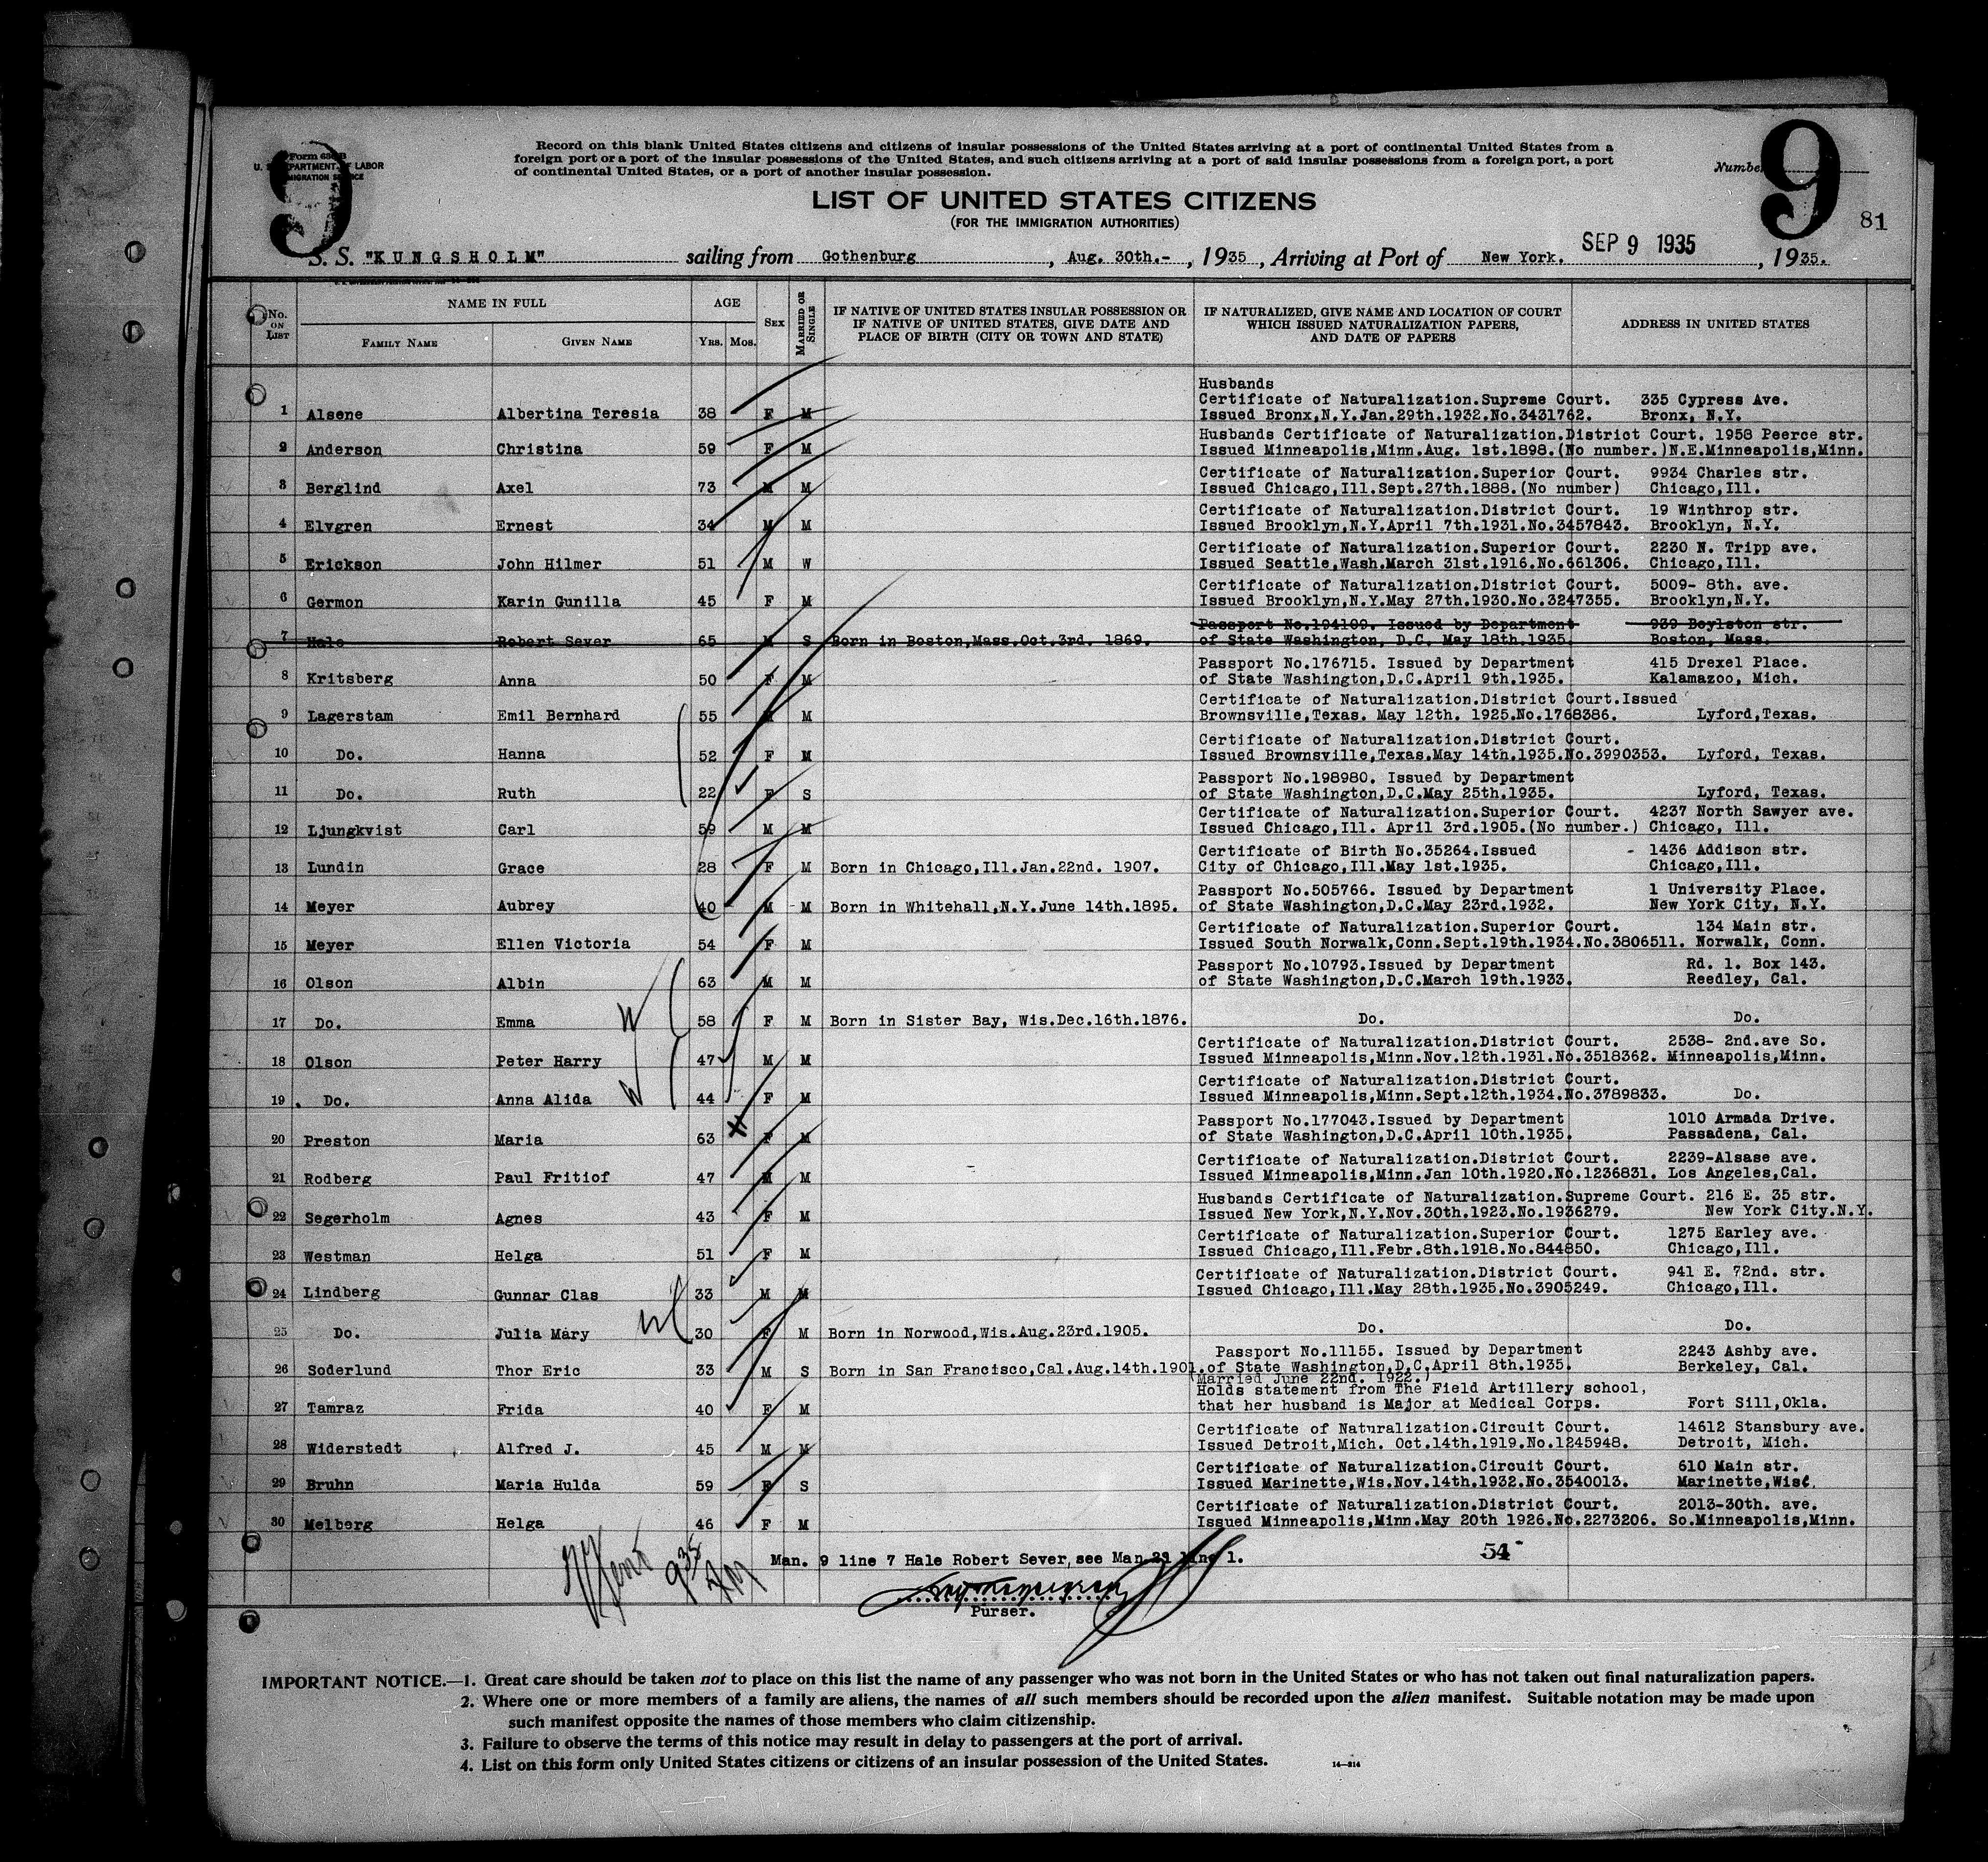 9
Form 630 B
U. S. DEPARTMENT OF LABOR
IMMIGRATION SERVICE
Record on this blank United States citizens and citizens of insular possessions of the United States arriving at a port of continental United States from a
foreign port or a port of the insular possessions of the United States, and such citizens arriving at a port of said insular possessions from a foreign port, a port
of continental United States, or a port of another insular possession.
Number 9
81
LIST OF UNITED STATES CITIZENS
(FOR THE IMMIGRATION AUTHORITIES)
S. S. "KUNGSHOLM" sailing from Gothenburg, Aug. 30th.-, 1935, Arriving at Port of New York. SEP 9 1935, 1935.
No. ON LIST NAME IN FULL FAMILY NAME GIVEN NAME AGE YRS. MOS. SEX MARRIED OR SINGLE
IF NATIVE OF UNITED STATES INSULAR POSSESSION OR IF NATIVE OF UNITED STATES, GIVE DATE AND PLACE OF BIRTH (CITY OR TOWN AND STATE)
IF NATURALIZED, GIVE NAME AND LOCATION OF COURT WHICH ISSUED NATURALIZATION PAPERS, AND DATE OF PAPERS
ADDRESS IN UNITED STATES
Husbands
Certificate of Naturalization.Supreme Court. 335 Cypress Ave.
1 Alsene Albertina Teresia 38 F M Issued Bronx,N.Y.Jan.29th.1932.No.3431762. Bronx, N.Y.
Husbands Certificate of Naturalization.District Court. 1958 Peerce str.
2 Anderson Christina 59 F M Issued Minneapolis,Minn.Aug. 1st.1898.(No number.)N.E.Minneapolis,Minn.
Certificate of Naturalization.Superior Court. 9934 Charles str.
3 Berglind Axel 73 M M Issued Chicago,Ill.Sept.27th.1888.(No number) Chicago,Ill.
Certificate of Naturalization.District Court. 19 Winthrop str.
4 Elvgren Ernest 34 M M Issued Brooklyn,N.Y.April 7th.1931.No.3457843. Brooklyn, N.Y.
Certificate of Naturalization.Superior Court. 2230 N. Tripp ave.
5 Erickson John Hilmer 51 M W Issued Seattle,Wash.March 31st.1916.No.661306. Chicago,Ill.
Certificate of Naturalization.District Court. 5009- 8th. ave.
6 Germon Karin Gunilla 45 F M Issued Brooklyn,N.Y.May 27th.1930.No.3247355. Brooklyn,N.Y.
Passport No.194109. Issued by Department 939 Boylston str.
7 Hale Robert Sever 65 M S Born in Boston,Mass.Oct.3rd. 1869. of State Washington, D.C. May 18th.1935. Boston, Mass.
Passport No.176715. Issued by Department 415 Drexel Place.
8 Kritsberg Anna 50 F M of State Washington,D.C.April 9th.1935. Kalamazoo, Mich.
Certificate of Naturalization.District Court.Issued
9 Lagerstam Emil Bernhard 55 M M Brownsville,Texas. May 12th. 1925.No.1768386. Lyford,Texas.
Certificate of Naturalization.District Court.
10 Do. Hanna 52 F M Issued Brownsville,Texas.May 14th.1935.No.3990353. Lyford, Texas.
Passport No.198980. Issued by Department
11 Do. Ruth 22 F S of State Washington,D.C.May 25th.1935. Lyford, Texas.
Certificate of Naturalization.Superior Court. 4237 North Sawyer ave.
12 Ljungkvist Carl 59 M M Issued Chicago,Ill. April 3rd.1905.(No number.) Chicago, Ill.
Certificate of Birth No.35264.Issued - 1436 Addison str.
13 Lundin Grace 28 F M Born in Chicago,Ill.Jan.22nd. 1907. City of Chicago,Ill.May 1st.1935. Chicago,Ill.
Passport No.505766. Issued by Department 1 University Place.
14 Meyer Aubrey 40 M M Born in Whitehall,N.Y.June 14th.1895. of State Washington,D.C.May 23rd.1932. New York City, N.Y.
Certificate of Naturalization.Superior Court. 134 Main str.
15 Meyer Ellen Victoria 54 F M Issued South Norwalk,Conn.Sept.19th.1934.No.3806511. Norwalk, Conn.
Passport No.10793.Issued by Department Rd. 1. Box 143.
16 Olson Albin 63 M M of State Washington,D.C.March 19th.1933. Reedley, Cal.
17 Do. Emma 58 F M Born in Sister Bay, Wis.Dec.16th.1876. Do. Do.
Certificate of Naturalization.District Court. 2538- 2nd.ave So.
18 Olson Peter Harry 47 M M Issued Minneapolis,Minn.Nov.12th.1931.No.3518362. Minneapolis,Minn.
Certificate of Naturalization.District Court.
19 Do. Anna Alida 44 F M Issued Minneapolis,Minn.Sept.12th.1934.No.3789833. Do.
Passport No.177043.Issued by Department 1010 Armada Drive.
20 Preston Maria 63 F M of State Washington,D.C.April 10th.1935. Passadena, Cal.
Certificate of Naturalization.District Court. 2239-Alsase ave.
21 Rodberg Paul Fritiof 47 M M Issued Minneapolis,Minn.Jan 10th.1920.No.1236831. Los Angeles,Cal.
Husbands Certificate of Naturalization.Supreme Court. 216 E. 35 str.
22 Segerholm Agnes 43 F M Issued New York,N.Y.Nov.30th.1923.No.1936279. New York City.N.Y.
Certificate of Naturalization.Superior Court. 1275 Earley ave.
23 Westman Helga 51 F M Issued Chicago,Ill.Febr.8th.1918.No.844850. Chicago,Ill.
Certificate of Naturalization.District Court. 941 E. 72nd. str.
24 Lindberg Gunnar Clas 33 M M Issued Chicago,Ill.May 28th.1935.No.3905249. Chicago,Ill.
25 Do. Julia Mary 30 F M Born in Norwood,Wis.Aug.23rd.1905. Do. Do.
Passport No.11155. Issued by Department 2243 Ashby ave.
26 Soderlund Thor Eric 33 M S Born in San Francisco,Cal.Aug.14th.1901.of State Washington,D.C.April 8th.1935. Berkeley, Cal.
(Married June 22nd. 1922.)
Holds statement from The Field Artillery school,
27 Tamraz Frida 40 F M that her husband is Major at Medical Corps. Fort Sill,Okla.
Certificate of Naturalization.Circuit Court. 14612 Stansbury ave.
28 Widerstedt Alfred J. 45 M M Issued Detroit,Mich. Oct.14th.1919.No.1245948. Detroit, Mich.
Certificate of Naturalization.Circuit Court. 610 Main str.
29 Bruhn Maria Hulda 59 F S Issued Marinette,Wis.Nov.14th.1932.No.3540013. Marinette,Wisc.
Certificate of Naturalization.District Court. 2013-30th. ave.
30 Melberg Helga 46 F M Issued Minneapolis,Minn.May 20th 1926.No.2273206. So.Minneapolis,Minn.
Man. 9 line 7 Hale Robert Sever, see Man 21 line 1. 54
9 35 AM
Purser.
IMPORTANT NOTICE.—1. Great care should be taken not to place on this list the name of any passenger who was not born in the United States or who has not taken out final naturalization papers.
2. Where one or more members of a family are aliens, the names of all such members should be recorded upon the alien manifest. Suitable notation may be made upon
such manifest opposite the names of those members who claim citizenship.
3. Failure to observe the terms of this notice may result in delay to passengers at the port of arrival.
4. List on this form only United States citizens or citizens of an insular possession of the United States.
14—814